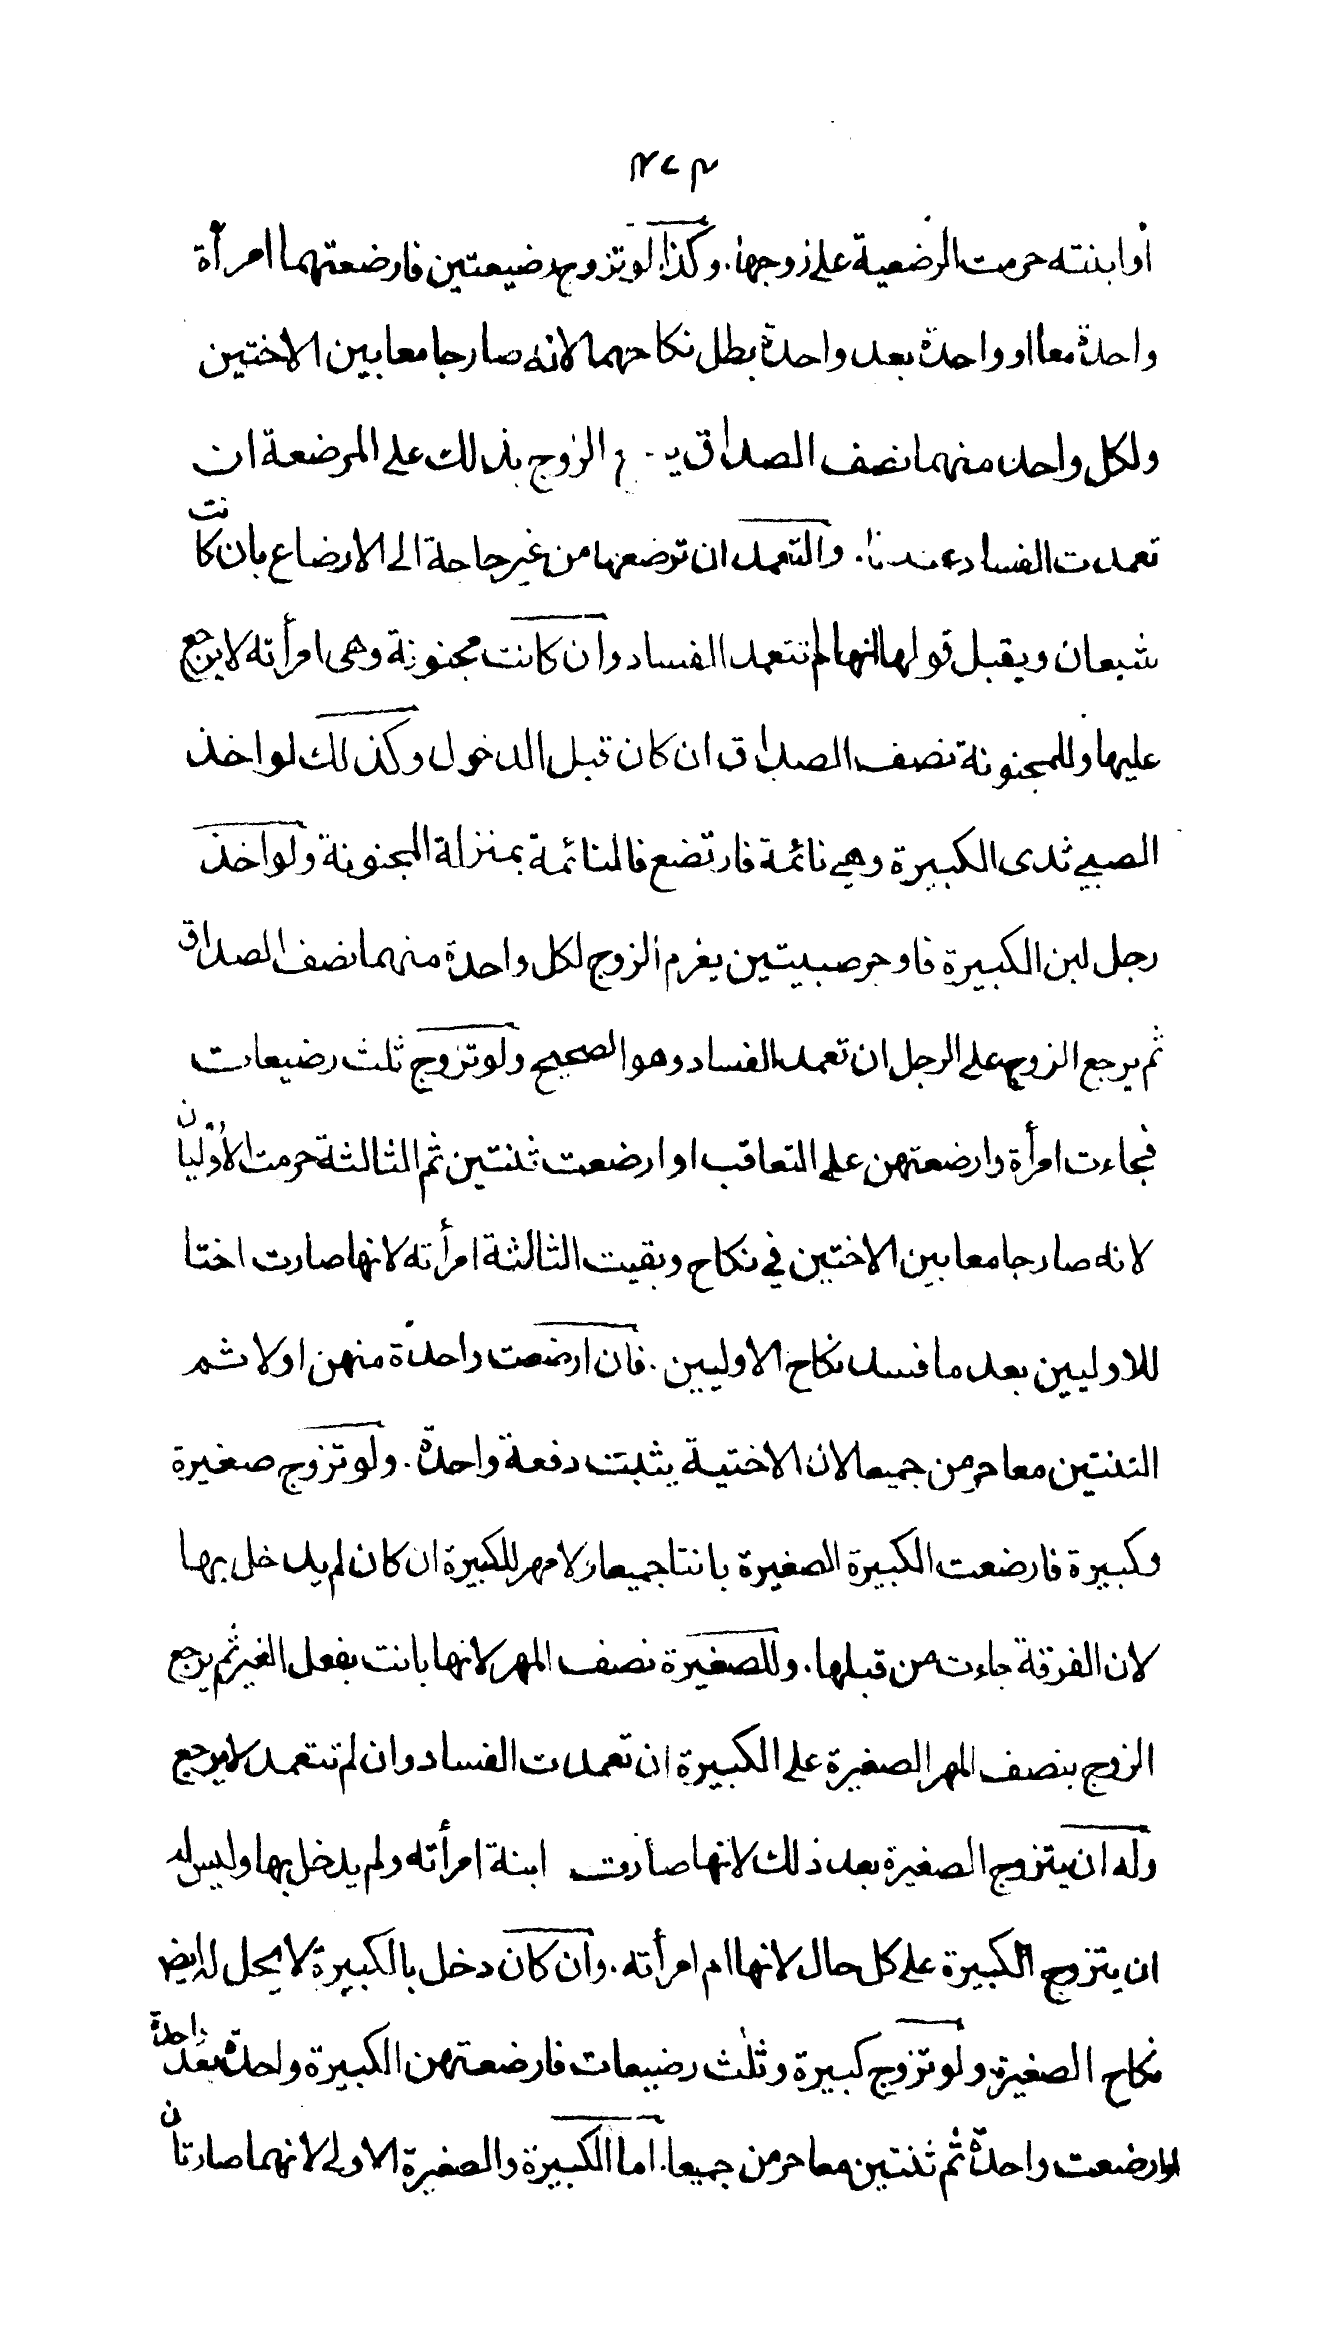 ٢٧٣
أو ابنته حرمت الرضعية على زوجها. وكذا لو تزوج رضيعتين فارضعتهما امرأة
واحدة معا او واحدة بعد واحدة بطل نكاحهما لانه صار جامعا بين الاختين
ولكل واحد منهما نصف الصداق الزوج بذلك على المرضعة ان
تعمدت الفساد عندنا. والتعمد ان ترضعها من غير حاجة الى الارضاع بان كانت
شبعان ويقبل قولها انها لم تتعمد الفساد وان كانت مجنونة وهى امرأته لا يرجع
عليها وللمجنونة نصف الصداق ان كان قبل الدخول وكذلك لو اخذ
الصبي ثدى الكبيرة وهي نائمة فارتضع فالنائمة بمنزلة المجنونة ولو اخذ
رجل لبن الكبيرة فاوجر صبيتين يغرم الزوج لكل واحدة منهما نصف الصداق
ثم يرجع الزوج على الرجل ان تعمد الفساد وهو الصحيح ولو تزوج ثلث رضيعات
فجاءت امرأة وارضعتهن على التعاقب او ارضعت ثنتين ثم الثالثة حرمت الأوليان
لانه صار جامعا بين الاختين في نكاح وبقيت الثالثة امرأته لانها صارت اختا
للاوليين بعد ما فسد نكاح الاوليين. فان ارضعت واحدة منهن اولا ثم
الثنتين معا حرمن جميعا لان الاختية يثبت دفعة واحدة. ولو تزوج صغيرة
وكبيرة فارضعت الكبيرة الصغيرة بانتا جميعا ولا مهر للكبيرة ان كان لم يدخل بها
لان الفرقة جاءت من قبلها. وللصغيرة نصف المهر لانها بانت بفعل الغير ثم يرجع
الزوج بنصف المهر الصغيرة على الكبيرة ان تعمدت الفساد وان لم تتعمد لا يرجع
وله ان يتزوج الصغيرة بعد ذلك لانها صارت ابنة امرأته ولم يدخل بها وليس له
ان يتزوج الكبيرة على كل حال لانها ام امرأته. وان كان دخل بالكبيرة لا يحل له ايض
نكاح الصغيرة. ولو تزوج كبيرة وثلث رضيعات فارضعتهن الكبيرة واحدة بعد واحدة
او ارضعت واحدة ثم ثنتين معا حرمن جميعا. اما الكبيرة والصغيرة الاولى لانهما صارتا